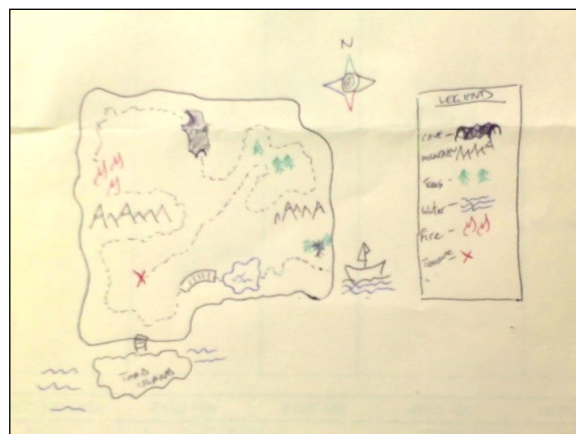 N
LEGENDS
CAVE -
MOUNTAIN
Trees
Water -
Fire -
Treasure
TOAD
ISLAND